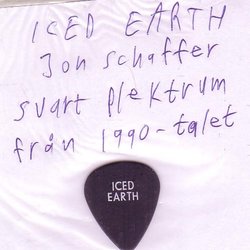 ICED EARTH
Jon schaffer
svart plektrum
från 1990-talet
ICED
EARTH